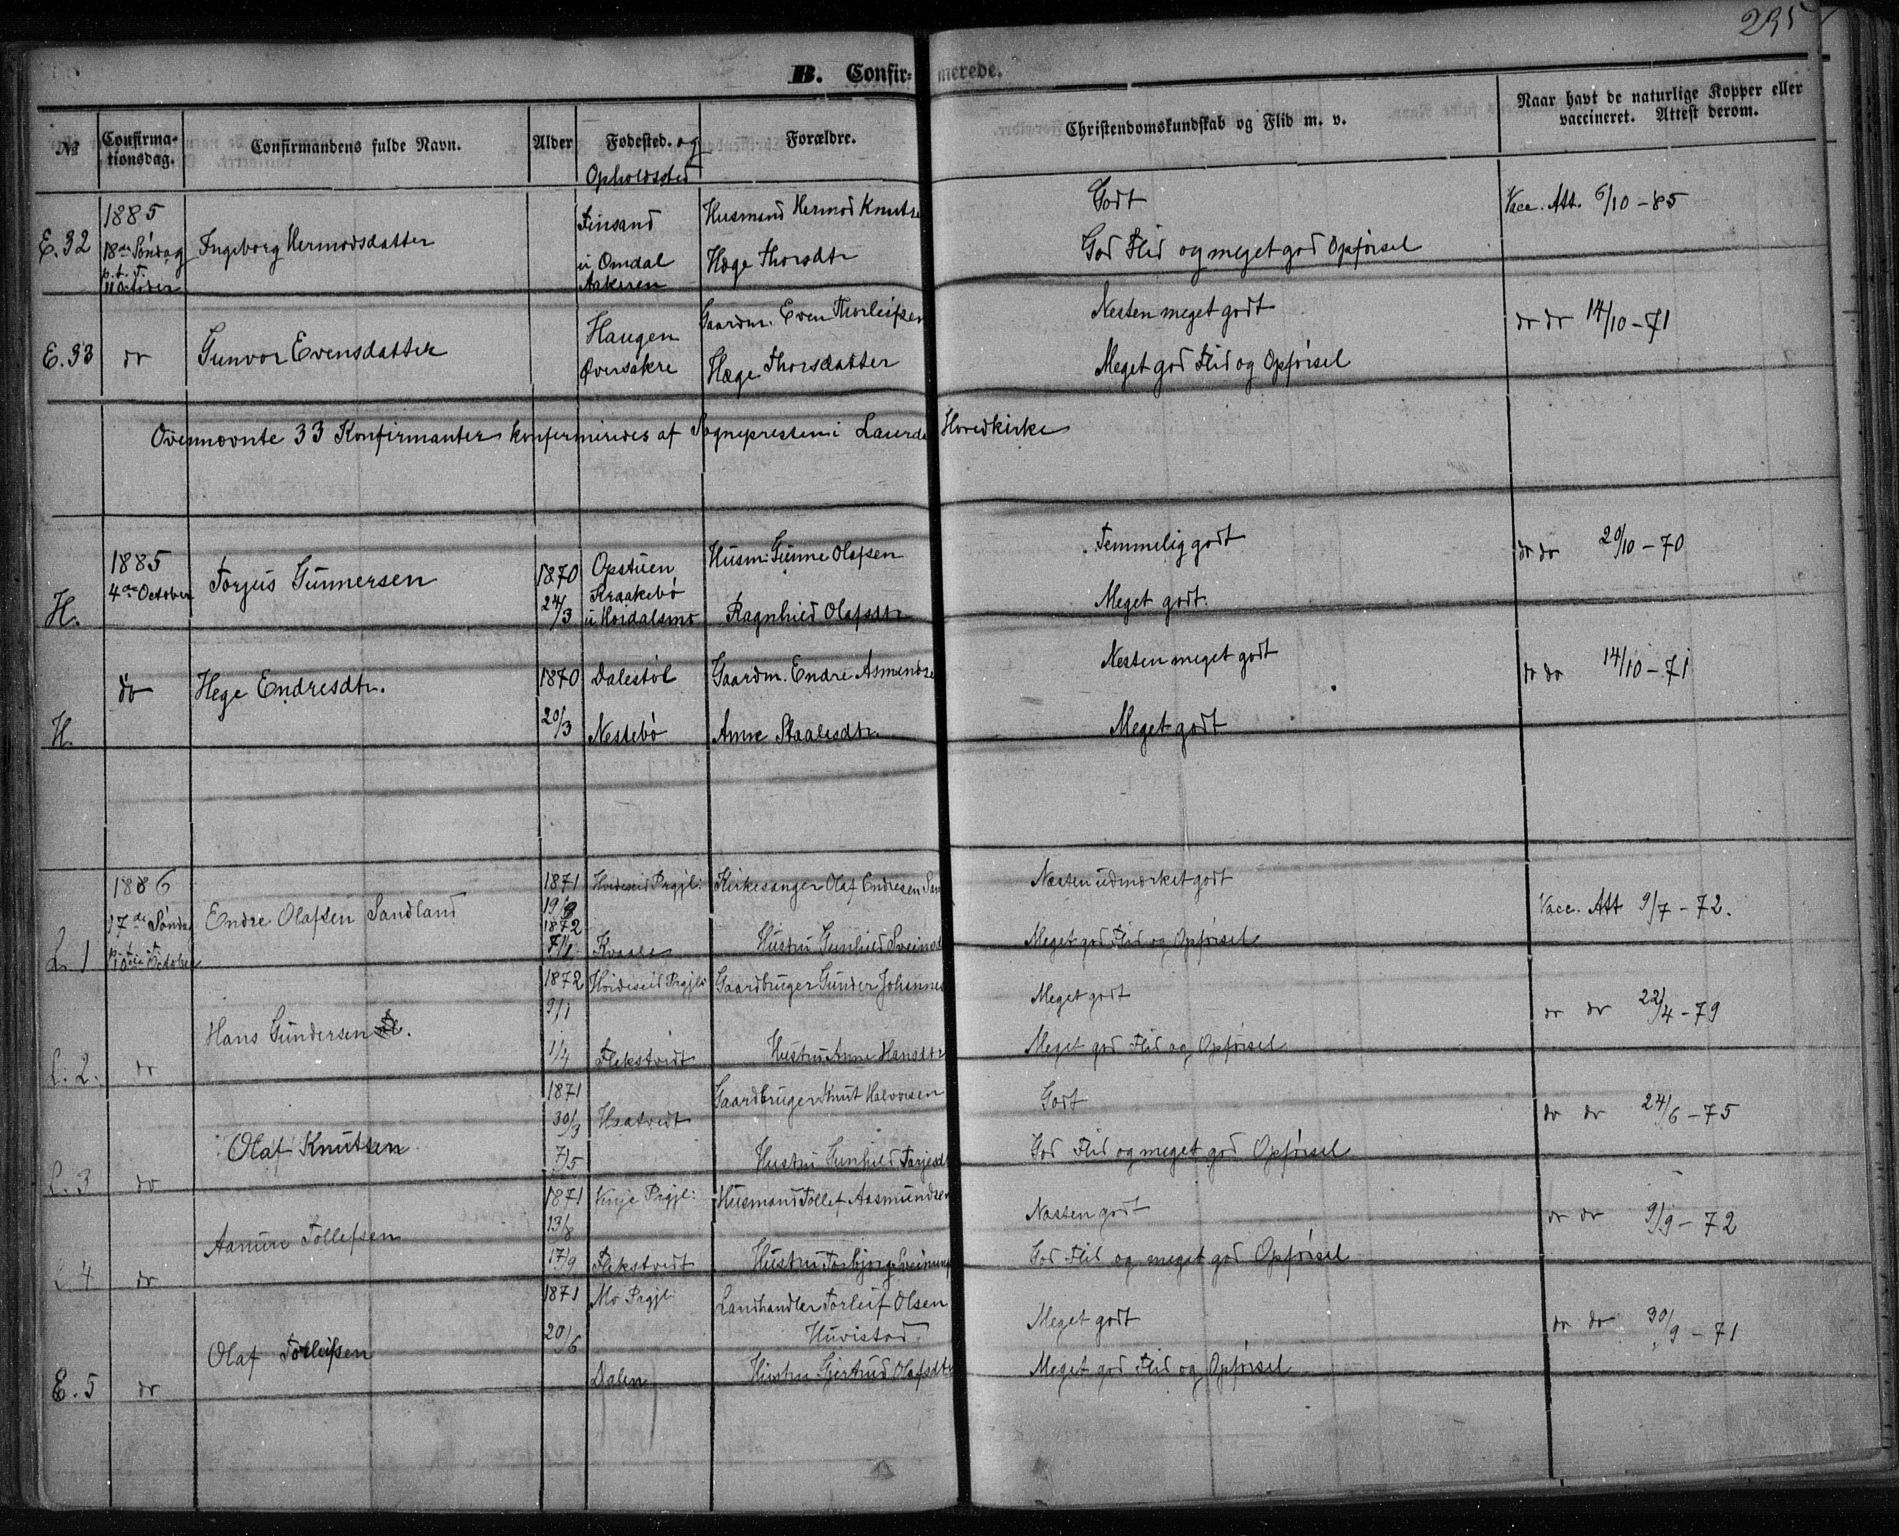 235
B. Confirmerede.
№ Confirmationsdag. Confirmandens fulde Navn. Alder Fødested. og Opholdssted Forældre. Christendomskundskab og Flid m. v. Naar havt de naturlige Kopper eller vaccineret. Attest derom.
1885 Finsand Husmand Hermod Knuts Godt Vacc. Att. 6/10-85
E.32 18de Søndag Ingeborg Hermodsdatter
p. t. T. i Omdal Hæge Thorsdtr God Flid og meget god Opførsel
11 October Aakeren
Haugen Gaardm. Even Thorleifsen Nesten meget godt do do 14/10-71
E.33 do Gunvor Evensdatter
Øversakre Hæge Thorsdatter Meget god Flid og Opførsel
Ovennævnte 33 Konfirmanter konfirmeredes af Sognepresten i Laurdal Hovedkirke
1885 1870 Opstuen Husm. Gunne Olafsen Temmelig godt do do 20/10-70
4de October Torjus Gunnersen
H. 24/3 Kraakebø i Hoidalsmo Ragnhild Olafsdtr Meget godt.
do Hege Endresdtr. 1870 Dalestøl Gaardm. Endre Asmundse Nesten meget godt do do 14/10-71
H. 20/3 Nestebø Anne Staalesdtr. Meget godt
1886 1871 Hvideseid Prgjl: Kirkesanger Olaf Endresen San Næsten udmærket godt
17de Sønda Endre Olafsen Sandland 19/9 Vacc. Att 9/7-72.
1872
L. 1 10 October 7/1 Kvaale Hustru Gunhild Sveinsd Meget god Flid og Opførsel
1872 Hvideseid Prgjl: Gaardbruger Gunder Johannes Meget godt
9/1 do do 22/4-79
Hans Gundersen
L. 2. do 1/4 Flekstvedt Hustru Anne Hansdtr Meget god Flid og Opførsel
1871 Gaardbruger Knut Halvorsen Godt
30/3 Haatvedt do do 24/6-75
Olaf Knutsen
L. 3 do 7/5 Hustru Gunhild Torjesd God Flid og meget god Opførsel
1871 Vinje Prgjl: Husmand Tollef Aasmundsen Næsten godt
13/8 do do 9/9-72
Aanun Tollefsen
L 4 do 17/9 Flekstvedt Hustru Torbjorg Sveinung God Flid og meget god Opførsel
1871 Mo Prgjl Landhandler Torleif Olsen Meget godt
20/6 Huvistad. do do 30/9-71
Olaf Torleifsen
E. 5 do Dalen Hustru Gjertrud Olafsdtr Meget god Flid og Opførsel